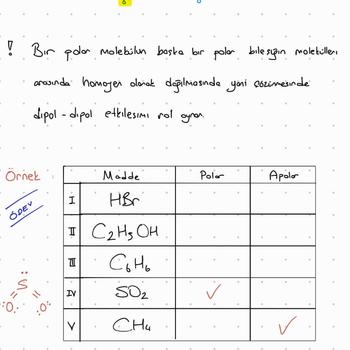 ! Bir polar molekülün başka bir polar bileşiğin molekülleri
arasında homojen olarak dağılmasında yani çözünmesinde
dipol-dipol etkileşimi rol oynar
Örnek
ÖDEV
Madde Polar Apolar
I HBr
II C2H5OH
III C6H6
IV SO2 ✓
V CH4 ✓
S
O O